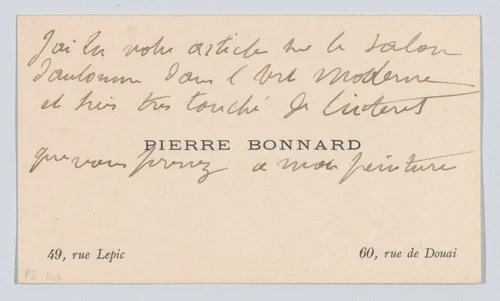 J'ai lu votre article sur le Salon
d'automne dans l'Art Moderne
et suis très touché de l'intérêt
PIERRE BONNARD
que vous prenez a mon peinture
49, rue Lepic
60, rue de Douai